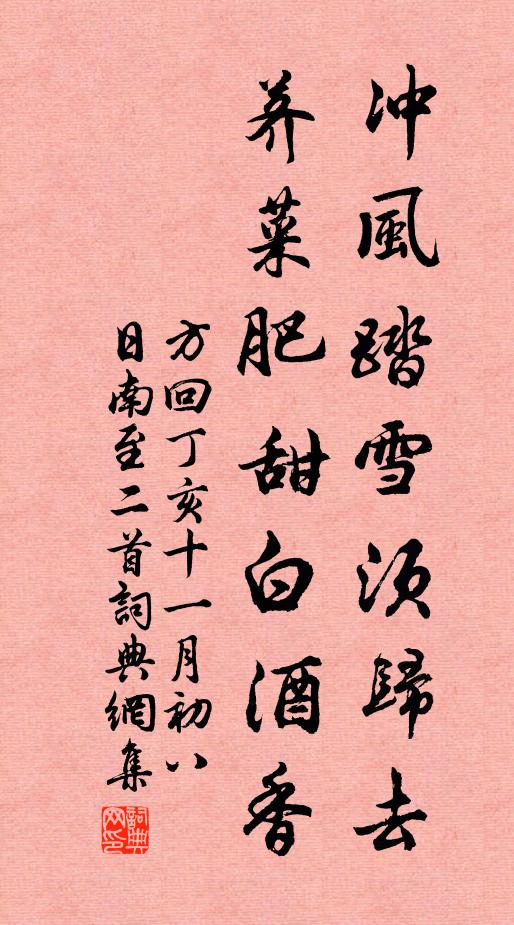 冲風踏雪須歸去
荞菜肥甜白酒香
方回丁亥十一月初八
日南至二首詞典網集
詞典
网印